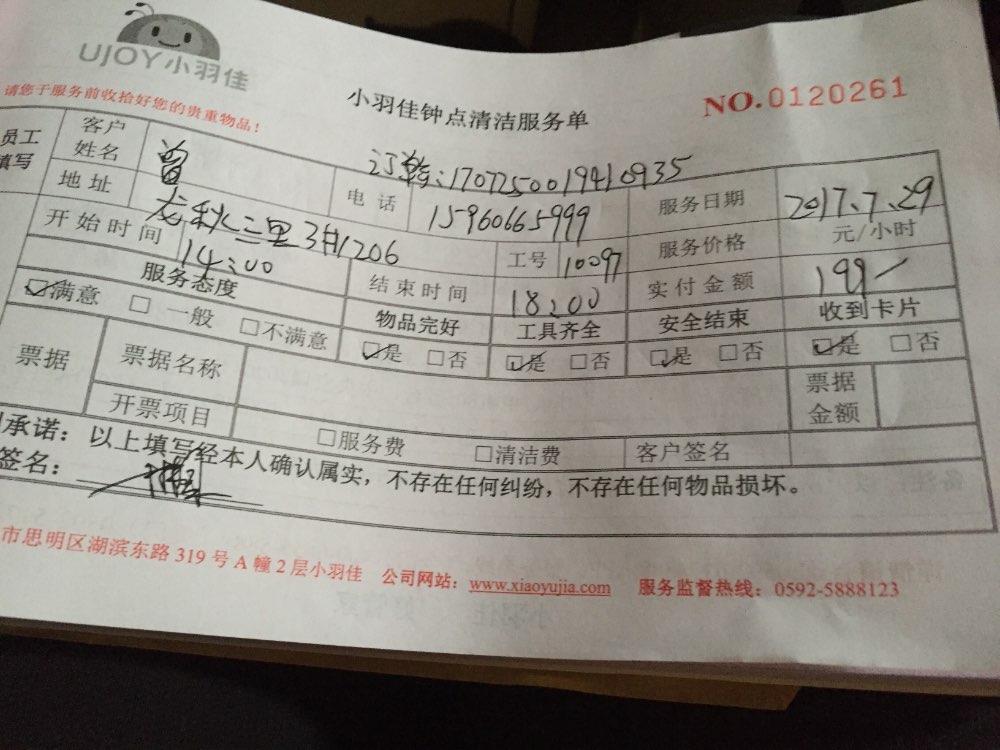 UJOY小羽佳
请您于服务前收拾好您的贵重物品！
小羽佳钟点清洁服务单
NO.0120261
员工
填写
客户
姓名
曾
订单:1707250019410935
地址
龙秋三里3#1206
电话
15960665999
服务日期
2017.7.29
开始时间
14:00
工号
10097
服务价格
元/小时
服务态度
结束时间
18:00
实付金额
199
☑满意 □一般 □不满意
物品完好
工具齐全
安全结束
收到卡片
☑是 □否
☑是 □否
☑是 □否
☑是 □否
票据
票据名称
票据
金额
开票项目
□服务费
□清洁费
客户签名
承诺：以上填写经本人确认属实，不存在任何纠纷，不存在任何物品损坏。
签名：
市思明区湖滨东路319号A幢2层小羽佳 公司网站：www.xiaoyujia.com 服务监督热线：0592-5888123